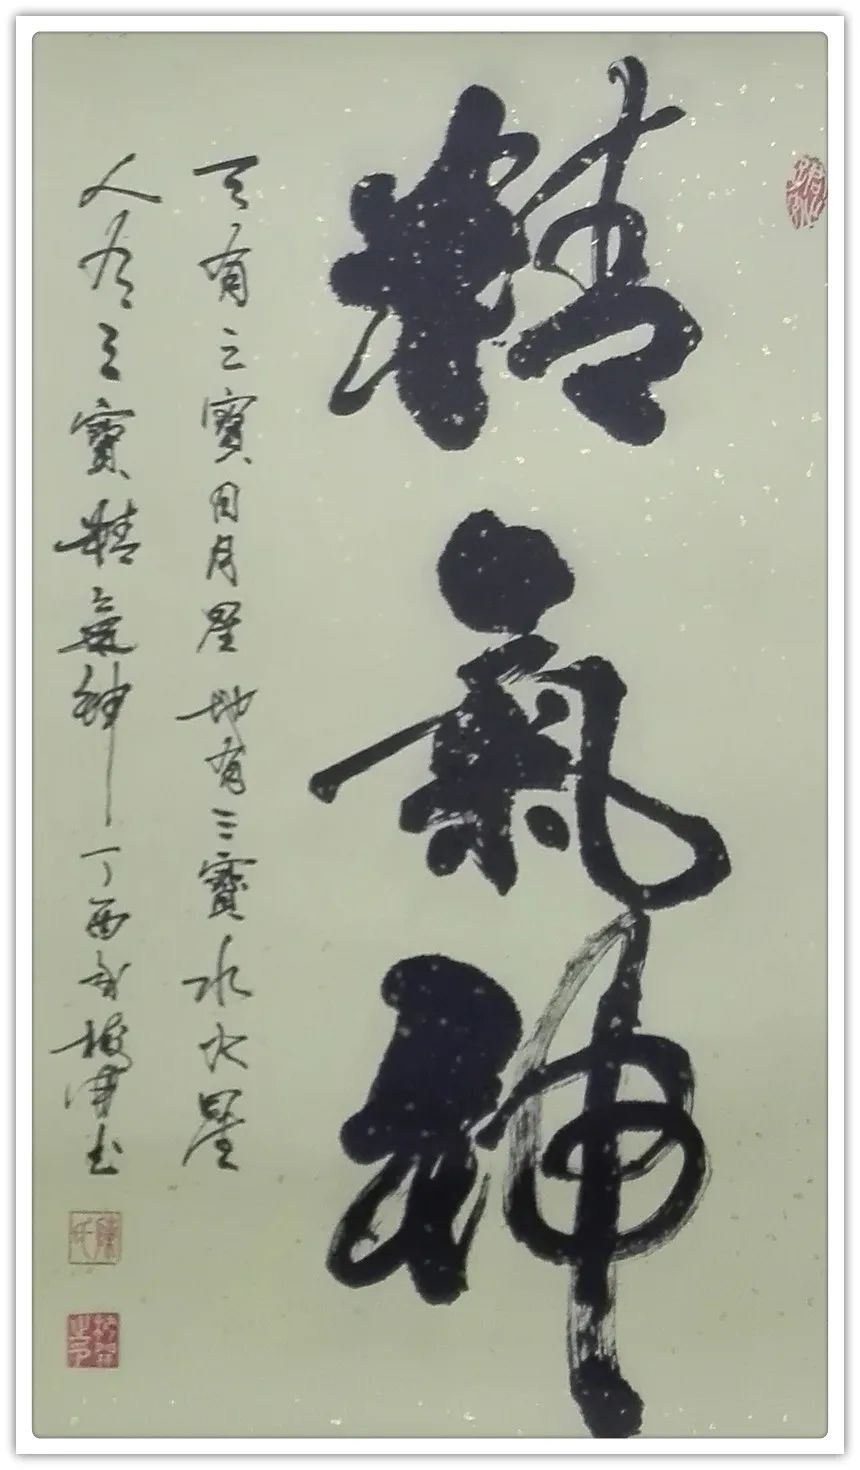 精氣神
天有三寶日月星地有三寶水火星
人有三寶精氣神丁酉年书
陳氏